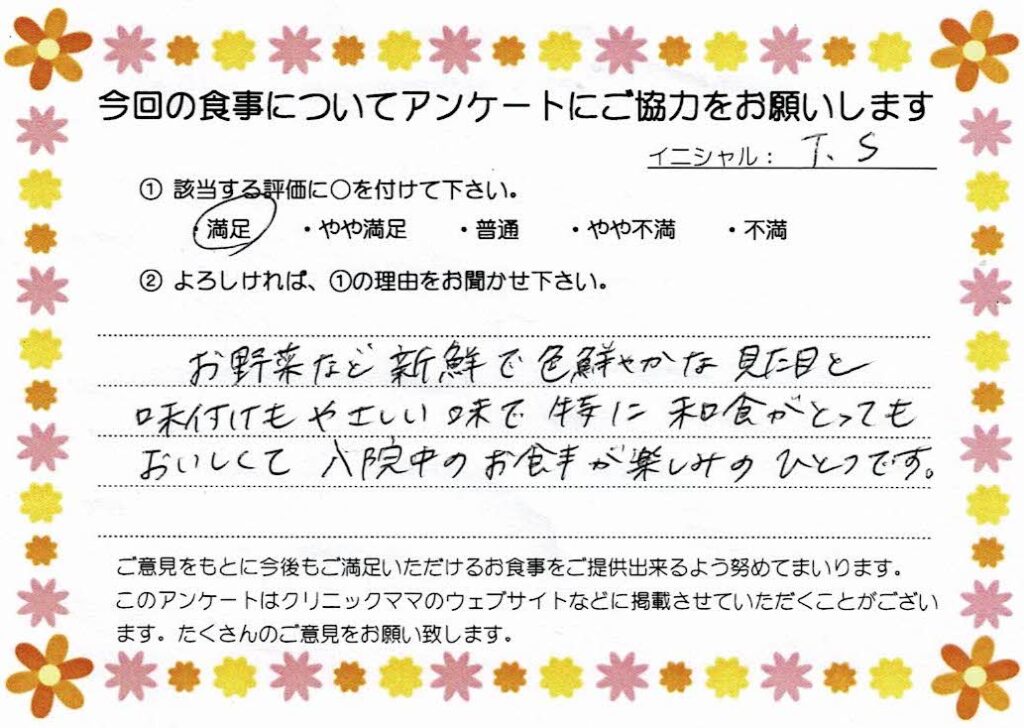 今回の食事についてアンケートにご協力をお願いします
イニシャル： T. S
① 該当する評価に○を付けて下さい。
・満足 ・やや満足 ・普通 ・やや不満 ・不満
② よろしければ、①の理由をお聞かせ下さい。
お野菜など新鮮で色鮮やかな見た目と
味付けもやさしい味で特に和食がとっても
おいしくて入院中のお食事が楽しみのひとつです。
ご意見をもとに今後もご満足いただけるお食事をご提供出来るよう努めてまいります。
このアンケートはクリニックママのウェブサイトなどに掲載させていただくことがござい
ます。たくさんのご意見をお願い致します。